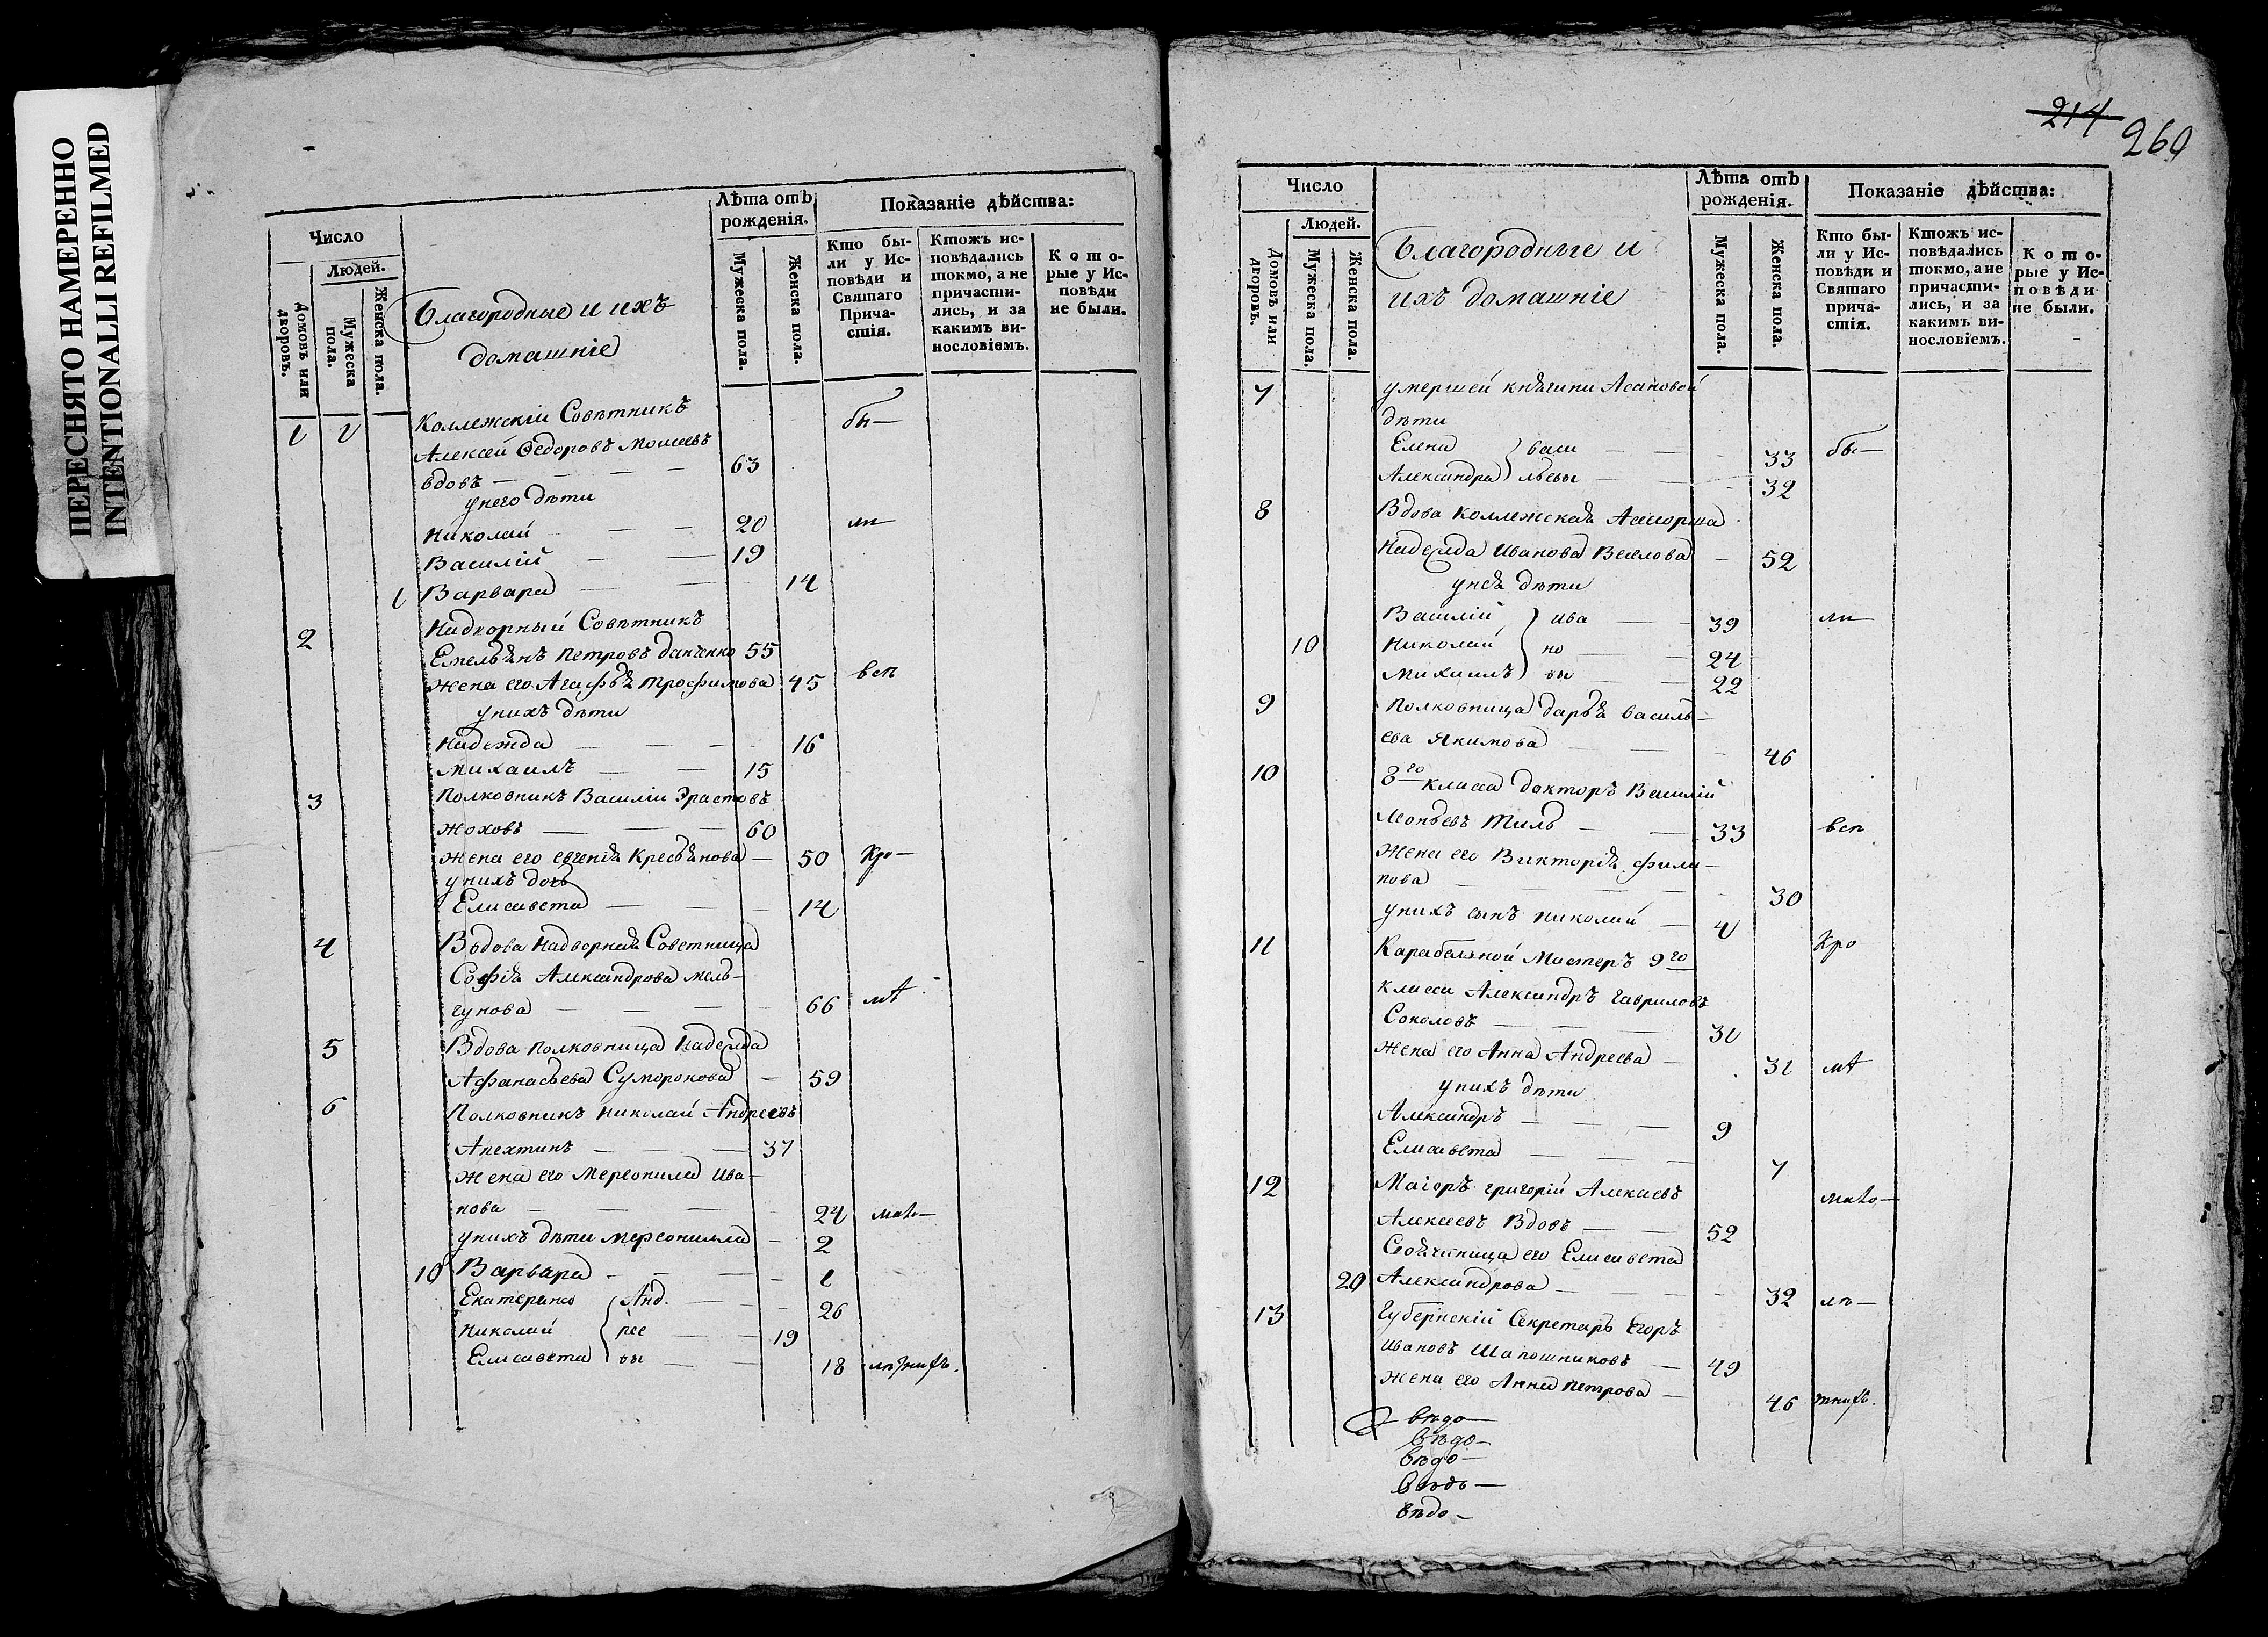 ПЕРЕСНЯТО НАМЕРЕННО
INTENTIONALLI REFILMED
Число
Людей.
Домовъ или дворовъ.
Мужеска пола.
Женска пола.
Благородные и ихъ
домашніе
Лѣта отъ рожденія.
Мужеска пола.
Женска пола.
Показаніе дѣйства:
Кто бы-
ли у Ис-
повѣди и
Святаго
Прича-
стія.
Ктожъ ис-
повѣдались
токмо, а не
причасти-
лись, и за
какимъ ви-
нословіемъ.
Кото-
рые у Ис-
повѣди
не были.
1 1 Коллежскіи Совѣтникъ бы—
Алексей Ѳедоровъ
вдовъ — 63
унего дѣти
Николай — 20
Василій — 19
1 Варвара — 14
2 Надворный Совѣтникъ
Емельянъ Петровъ Данченко 55
Жена его Агафья Трофимова 45
унихъ дѣти
Надежда — 16
Михаилъ — 15
3 Полковникъ Василіи Эрастовъ
Жоховъ — 60
Жена его Евгенія Кресьянова — 50 Кро—
унихъ дочь
Елисавета — 14
4 Вдова Надворная Советница
Софія Александрова Мель-
гунова — 66
5 Вдова Полковница Надежда
Афанасьева Суморокова — 59
6 Полковникъ Николай Андреевъ
Апехтинъ — 37
Жена его Мерсонила Ива-
нова — 24
унихъ дѣти Мерсонилла — 2
10 Варвара — 1
Екатерина Анд. — 26
Николай рее — 19
Елисавета вы — 18
214
260
Число
Людей.
Домовъ или дворовъ.
Мужеска пола.
Женска пола.
Благородные и
ихъ домашніе
Лѣта отъ рожденія.
Мужеска пола.
Женска пола.
Показаніе дѣйства:
Кто бы-
ли у Ис-
повѣди и
Святаго
прича-
стія.
Ктожъ ис-
повѣдались
токмо, а не
причасти-
лись, и за
какимъ ви-
нословіемъ.
Кото-
рые у Ис-
повѣди
не были.
7 умершей княгини Асановой
дѣти
Елена Васи — 33 бы—
Александра льевы — 32
8 Вдова Коллежская Асесорша
Надежда Иванова Веслова — 52
унея дѣти
Василій Ива — 39
10 Николай но — 24
Михаилъ вы — 22
9 Полковница Дарья Василь-
ева Якимова — 46
10 8го класса докторъ Василій
Леоньевъ Тиль — 33
Жена его Викторія Фили-
пова — 30
унихъ сынъ Николай — 4
11 Карабельной Мастеръ 9го Кро
класса Александръ Гавриловъ
Соколовъ — 31
Жена его Анна Андреева — 31
унихъ дѣти
Александръ — 9
Елисавета — 7
12 Маіоръ Григорій Алексеевъ
Алексеевъ Вдовъ — 52
Своячиница его Елисавета
20 Александрова — 32
13 Губернскій Секретарь Егоръ
Ивановъ Шапошниковъ — 49
Жена его Анна Петрова — 46